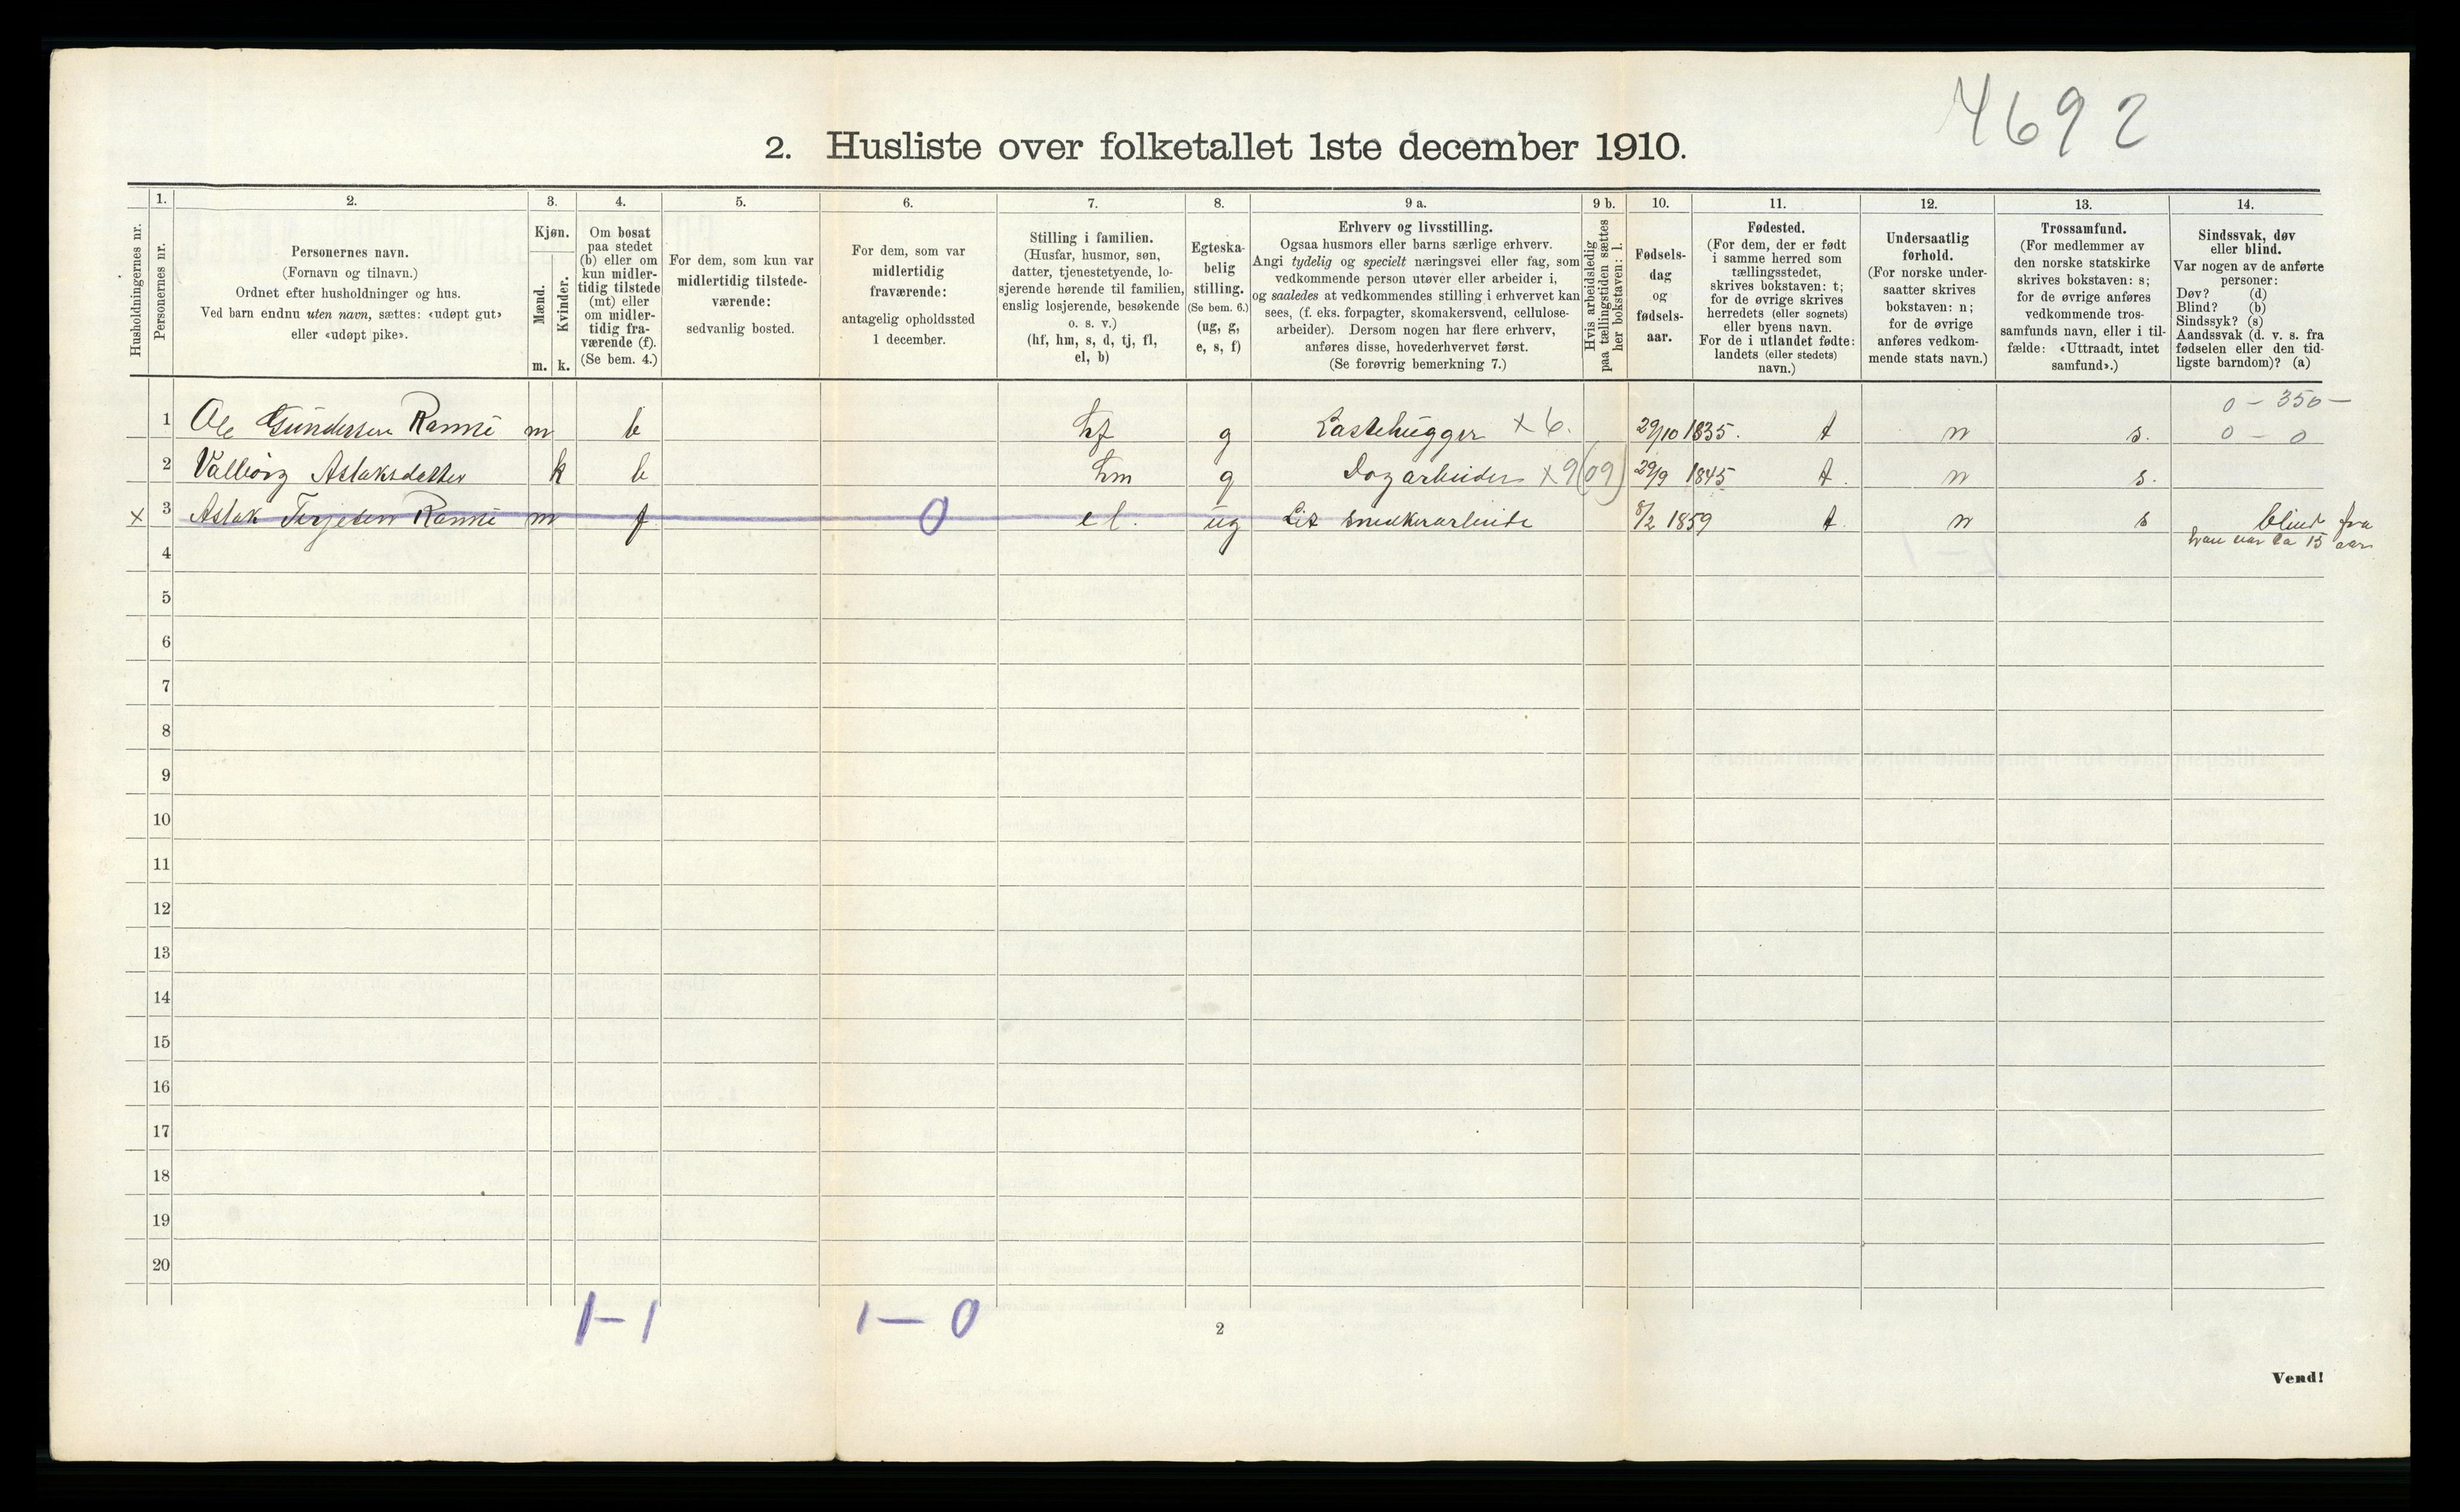 4692
2. Husliste over folketallet 1ste december 1910.
Husholdningernes nr.
1.
Personernes nr.
2.
Personernes navn.
(Fornavn og tilnavn.)
Ordnet efter husholdninger og hus.
Ved barn endnu uten navn, sættes: «udøpt gut»
eller «udøpt pike».
3.
Kjøn.
Mænd.
Kvinder.
m. k.
4.
Om bosat
paa stedet
(b) eller om
kun midler-
tidig tilstede
(mt) eller
om midler-
tidig fra-
værende (f).
(Se bem. 4.)
5.
For dem, som kun var
midlertidig tilstede-
værende:
sedvanlig bosted.
6.
For dem, som var
midlertidig
fraværende:
antagelig opholdssted
1 december.
7.
Stilling i familien.
(Husfar, husmor, søn,
datter, tjenestetyende, lo-
sjerende hørende til familien,
enslig losjerende, besøkende
o. s. v.)
(hf, hm, s, d, tj, fl,
el, b)
8.
Egteska-
belig
stilling.
(Se bem. 6.)
(ug, g,
e, s, f)
9 a.
Erhverv og livsstilling.
Ogsaa husmors eller barns særlige erhverv.
Angi tydelig og specielt næringsvei eller fag, som
vedkommende person utøver eller arbeider i,
og saaledes at vedkommendes stilling i erhvervet kan
sees, (f. eks. forpagter, skomakersvend, cellulose-
arbeider). Dersom nogen har flere erhverv,
anføres disse, hovederhvervet først.
(Se forøvrig bemerkning 7.)
9 b.
Hvis arbeidsledig
paa tællingstiden sættes
her bokstaven: l.
10.
Fødsels-
dag
og
fødsels-
aar.
11.
Fødested.
(For dem, der er født
i samme herred som
tællingsstedet,
skrives bokstaven: t;
for de øvrige skrives
herredets (eller sognets)
eller byens navn.
For de i utlandet fødte:
landets (eller stedets)
navn.)
12.
Undersaatlig
forhold.
(For norske under-
saatter skrives
bokstaven: n;
for de øvrige
anføres vedkom-
mende stats navn.)
13.
Trossamfund.
(For medlemmer av
den norske statskirke
skrives bokstaven: s;
for de øvrige anføres
vedkommende tros-
samfunds navn, eller i til-
fælde: «Uttraadt, intet
samfund».)
14.
Sindssvak, døv
eller blind.
Var nogen av de anførte
personer:
Døv? (d)
Blind? (b)
Sindssyk? (s)
Aandssvak (d. v. s. fra
fødselen eller den tid-
ligste barndom)? (a)
0 - 350 -
1 Ole Gundersen Ramse m b hf g Lastehugger x 6. 29/10 1835. t n s. 0 - 0
2 Valborg Aslaksdatter k b hm g Dagarbeider x 9(09) 29/9 1845 t. n s.
x 3 Aslak Terjesen Ramse m f 0 el. ug Lit snedkerarbeide 8/2 1859 t. n s blind fra
han var ca 15 aar
4
5
6
7
8
9
10
11
12
13
14
15
16
17
18
19
20
1-1 1 - 0
2
Vend!